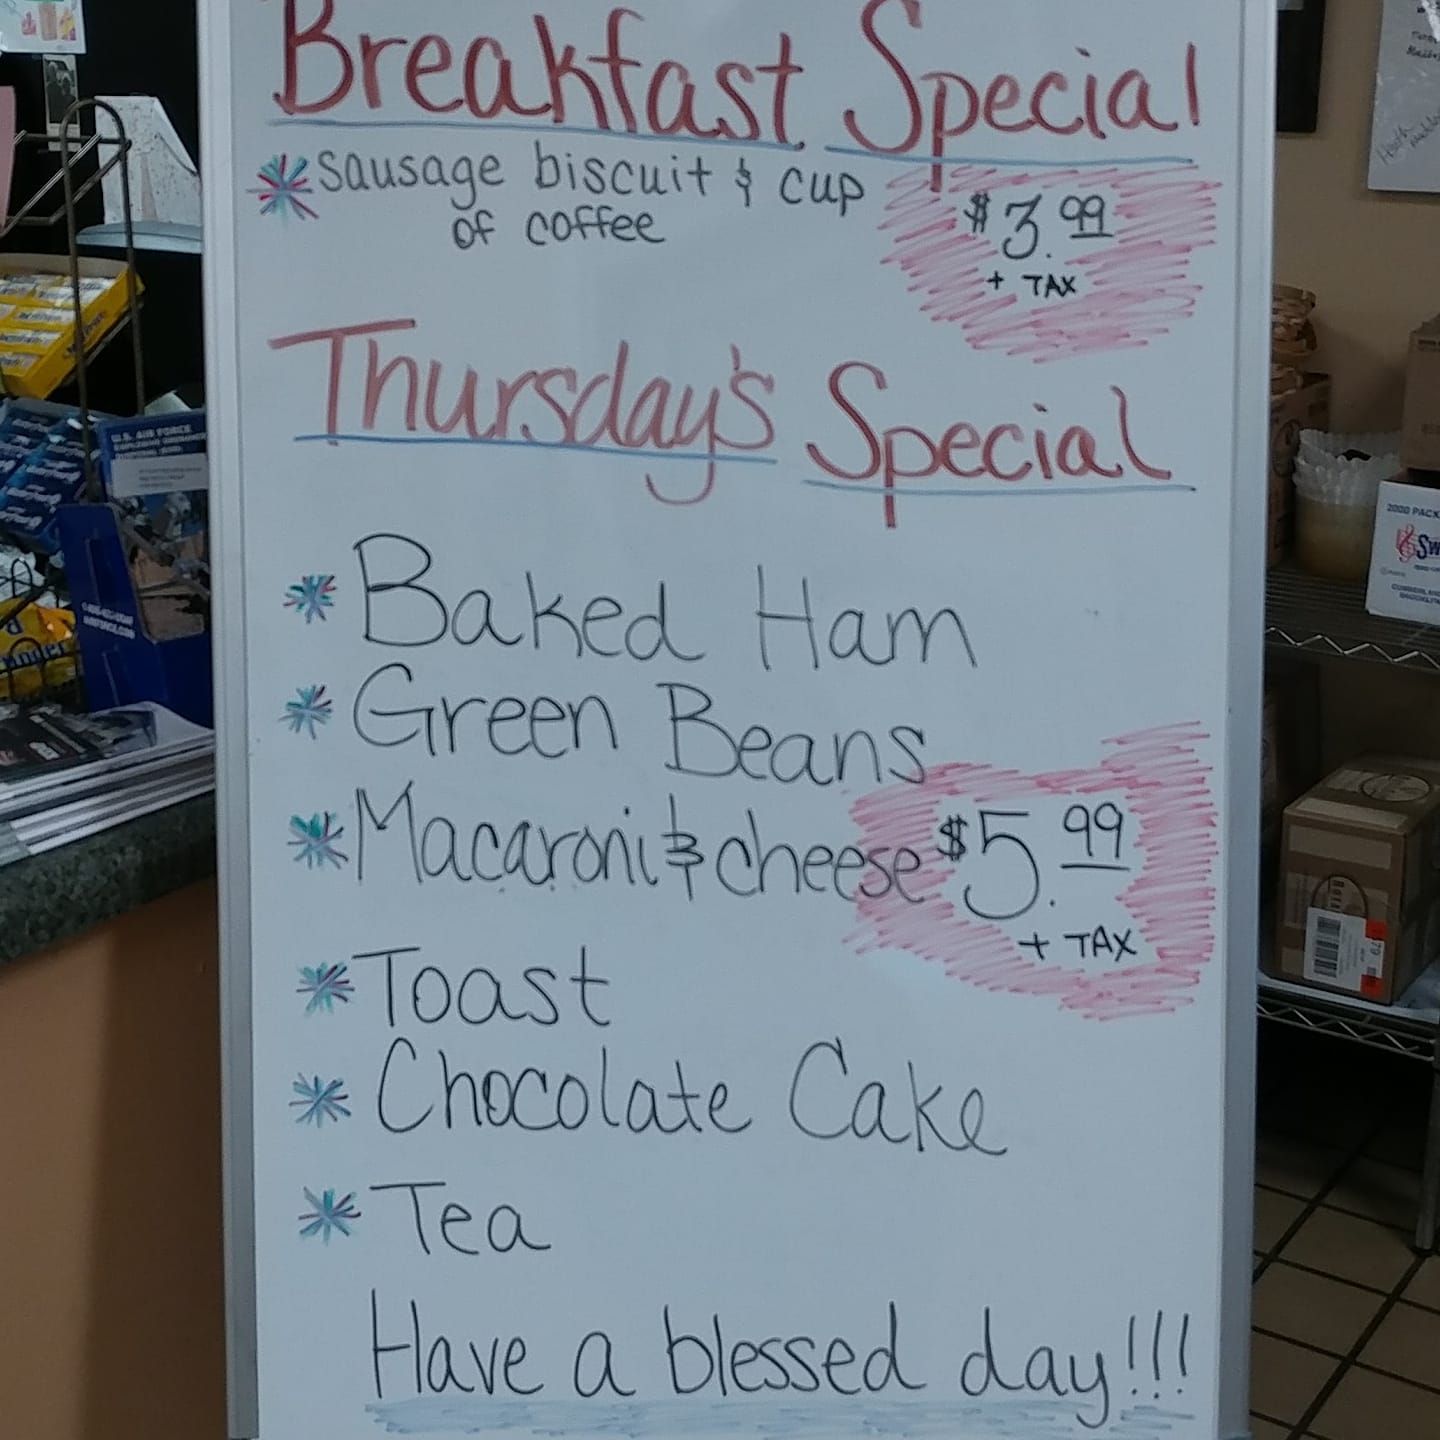 Breakfast Special
sausage biscuit & cup
of coffee
$3.99
+ TAX
Thursday's Special
Baked Ham
Green Beans
Macaroni & cheese $5.99
+ TAX
Toast
Chocolate Cake
Tea
Have a blessed day!!!
U.S. AIR FORCE
2000 PACK